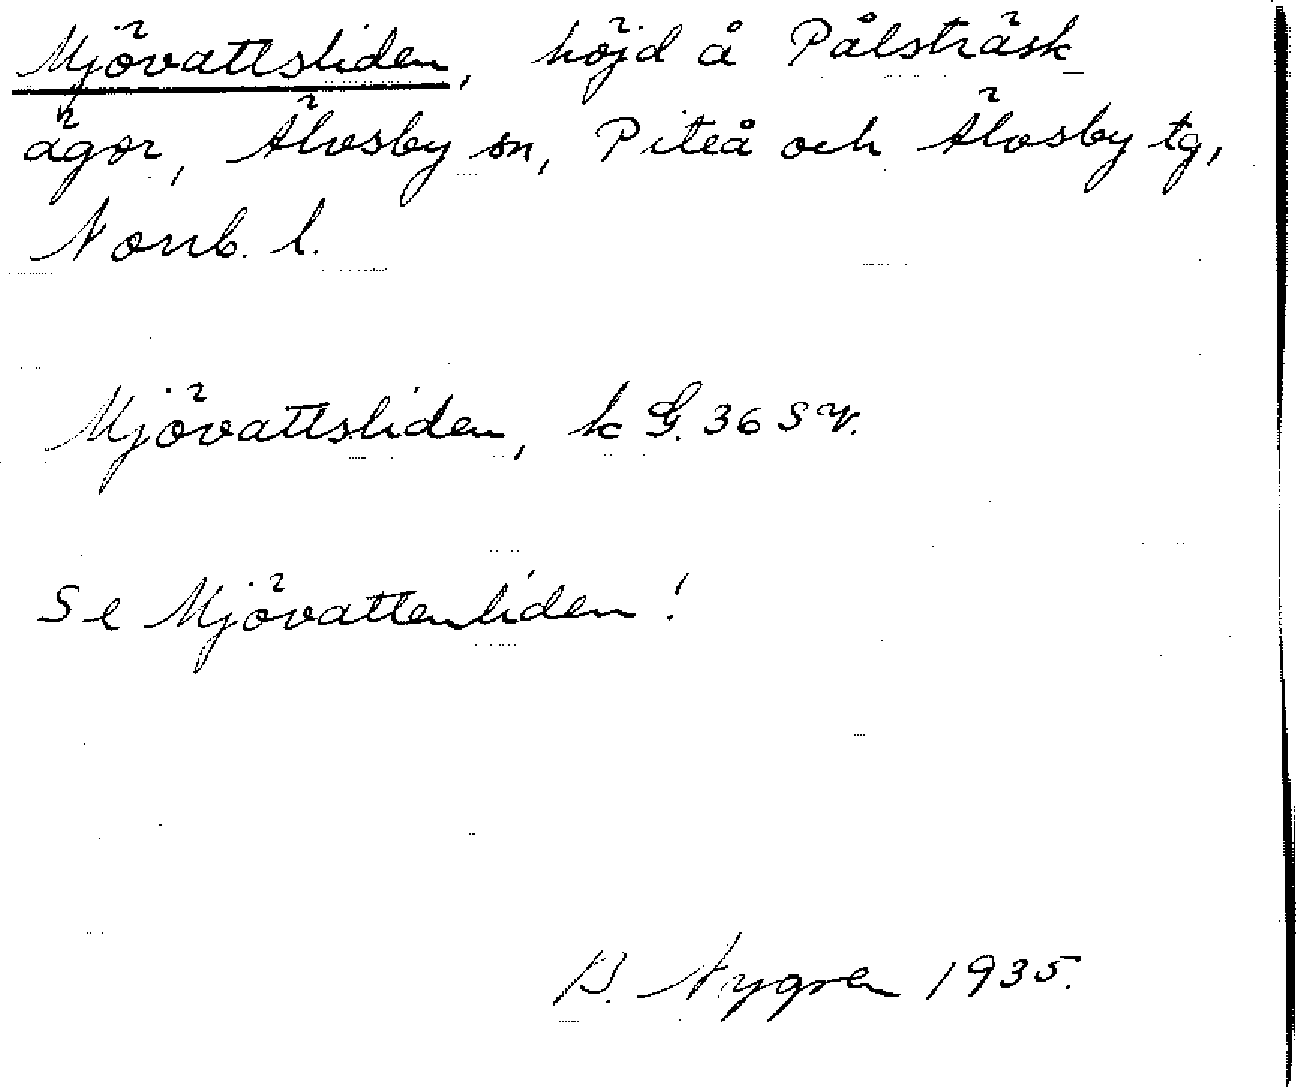 Mjövattsliden, höjd å Pålsträsk
ägor, Älvsby sn, Piteå och Älvsby tg,
Norrb. l.
Mjövattsliden, k G. 36 S V.
Se Mjövattenliden!
B. Nygren 1935.